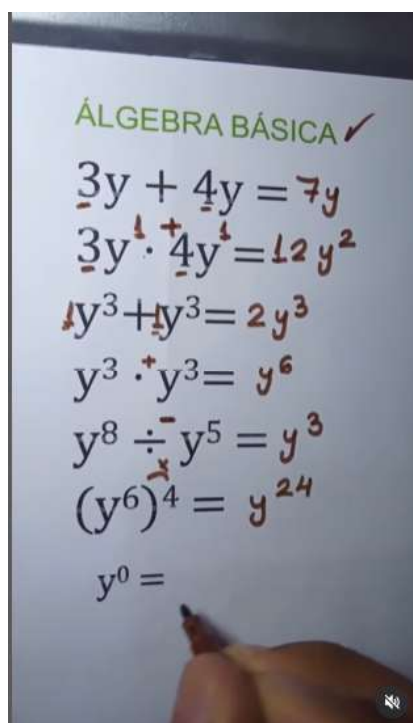 ÁLGEBRA BÁSICA ✓
3y + 4y = 7y
3y¹ · ⁺ 4y¹ = 12y²
1y³ + 1y³ = 2y³
y³ · ⁺ y³ = y⁶
y⁸ ÷ ⁻ y⁵ = y³
(y⁶)ˣ⁴ = y²⁴
y⁰ =